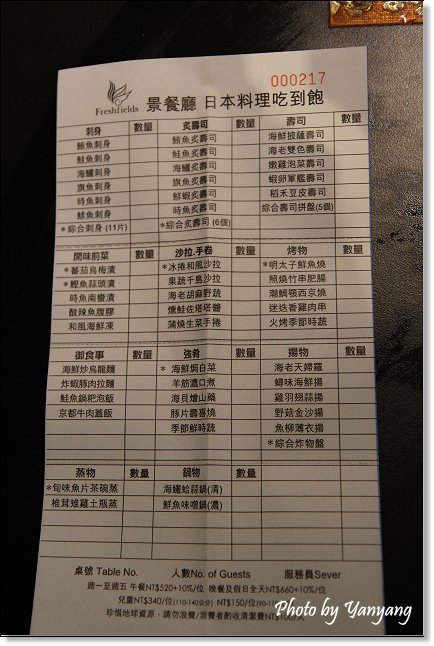 000217
Freshfields 景餐廳 日本料理吃到飽
刺身 數量 炙壽司 數量 壽司 數量
鮪魚刺身 鮪魚炙壽司 海鮮披薩壽司
鮭魚刺身 鮭魚炙壽司 海老雙色壽司
海鱺刺身 海鱺炙壽司 嫩雞泡菜壽司
旗魚刺身 旗魚炙壽司 蝦卵軍艦壽司
時魚刺身 鮮蝦炙壽司 稻禾豆皮壽司
鯡魚刺身 時魚炙壽司 綜合壽司拼盤(5個)
*綜合刺身 (11片) *綜合炙壽司 (6個)
開味前菜 數量 沙拉.手卷 數量 烤物 數量
*蕃茄烏梅漬 *冰捲和風沙拉 *明太子鮮魚燒
*鰹魚蒜頭漬 果蔬千島沙拉 照燒竹串肥腸
時魚南蠻漬 海老胡麻野蔬 潮鯛顎西京燒
酸辣魚腹膠 燻鮭佐塔塔醬 迷迭香雞肉串
和風海鮮凍 蒲燒生菜手捲 火烤季節時蔬
御食事 數量 強肴 數量 揚物 數量
海鮮炒烏龍麵 *海鮮焗白菜 海老天婦羅
炸蝦豚肉拉麵 羊筋濃口煮 蟳味海鮮揚
鮭魚鍋粑泡飯 海貝燴山藥 雞羽翅蒜揚
京都牛肉蓋飯 豚片壽喜燒 野菇金沙揚
季節鮮時蔬 魚柳薄衣揚
*綜合炸物盤
蒸物 數量 鍋物 數量
*旬味魚片茶碗蒸 海鱺蛤蒜鍋(清)
椎茸雉雞土瓶蒸 鮮魚味噌鍋(濃)
桌號 Table No. 人數No. of Guests 服務員Sever
週一至週五 午餐NT$520+10%/位 晚餐及假日全天NT$660+10%/位
兒童NT$340/位(110-140公分) NT$150/位(90-1
珍惜地球資源，請勿浪費/浪費者酌收清潔費NT$100/人
Photo by Yanyang